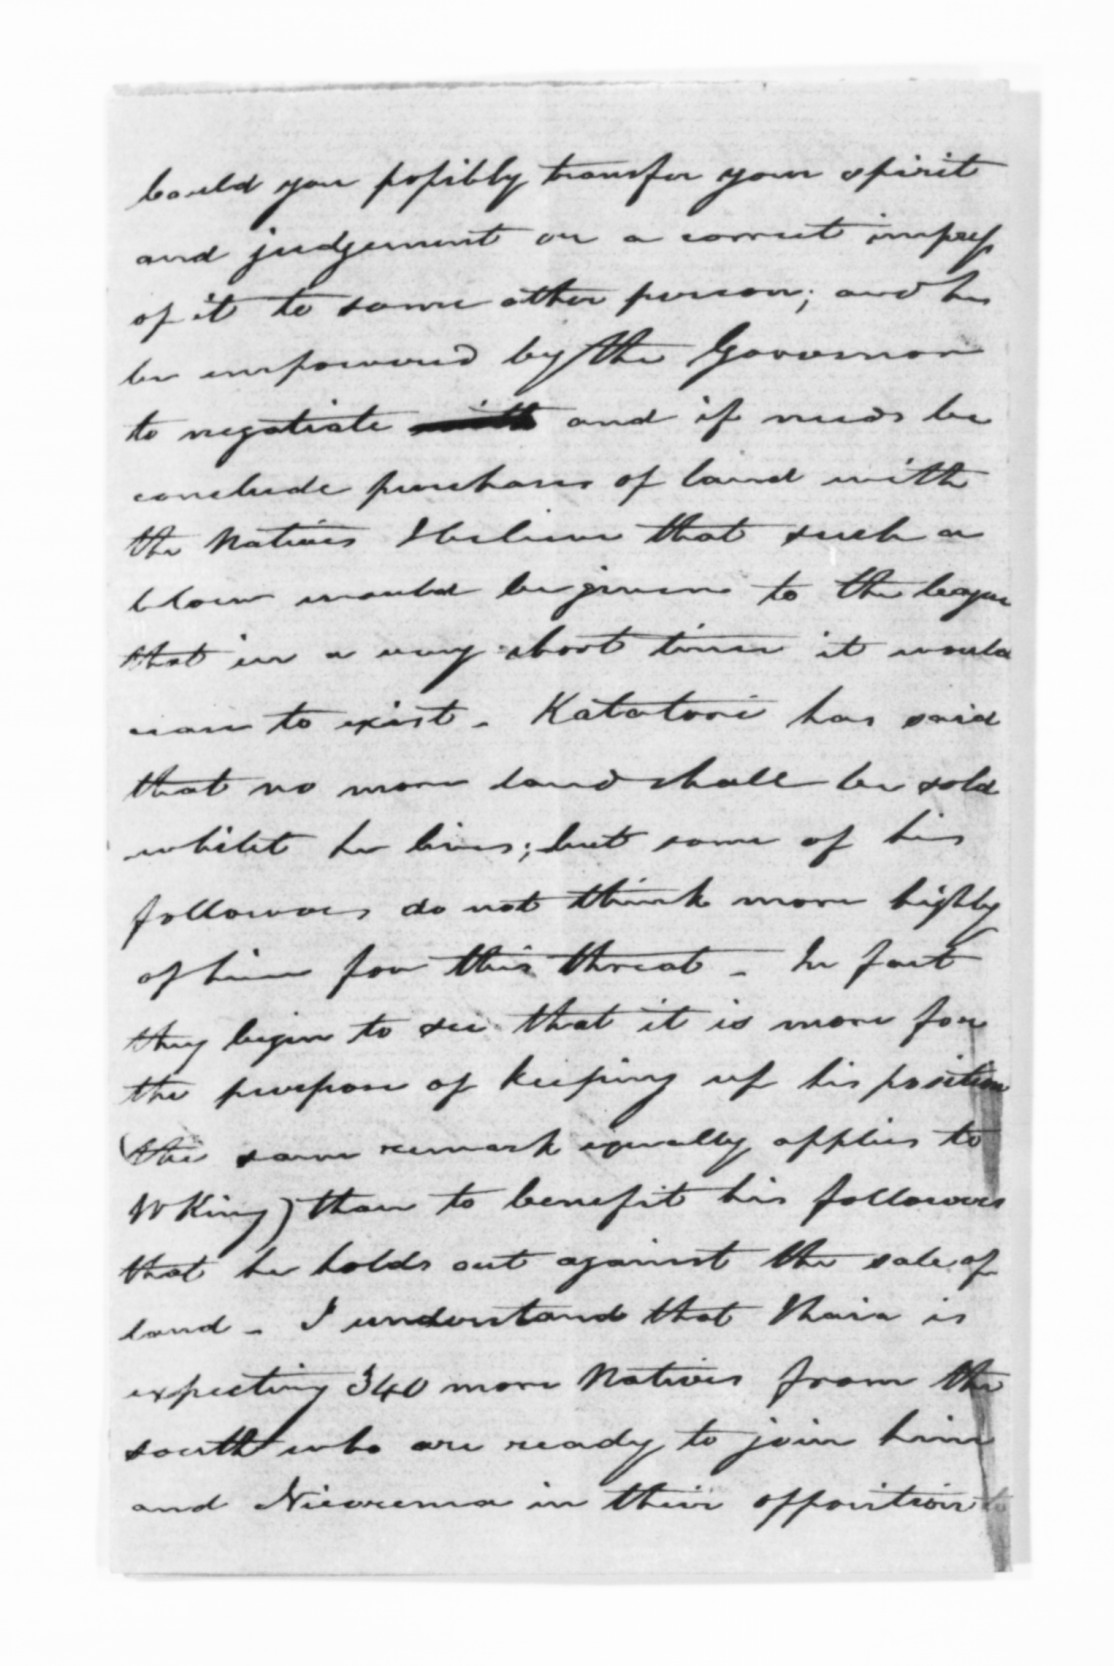 Could you possibly transfer your spirit
and judgement or a correct impress
of it to some other person; and he
be empowered by the Governor
to negotiate with and if needs be
conclude purchases of land with
the Natives I believe that such a
blow would be given to the league
that in a very short time it would
cease to exist. Katatore has said
that no more land shall be sold
whilst he lives; but some of his
followers do not think more highly
of him for this threat - In fact
they begin to see that it is more for
the purpose of keeping up his position
(the same remark equally applies to
W King) than to benefit his followers
that he holds out against the sale of
land - I understand that Ihaia is
expecting 340 more Natives from the
south who are ready to join him
and Nicorema in their opposition to